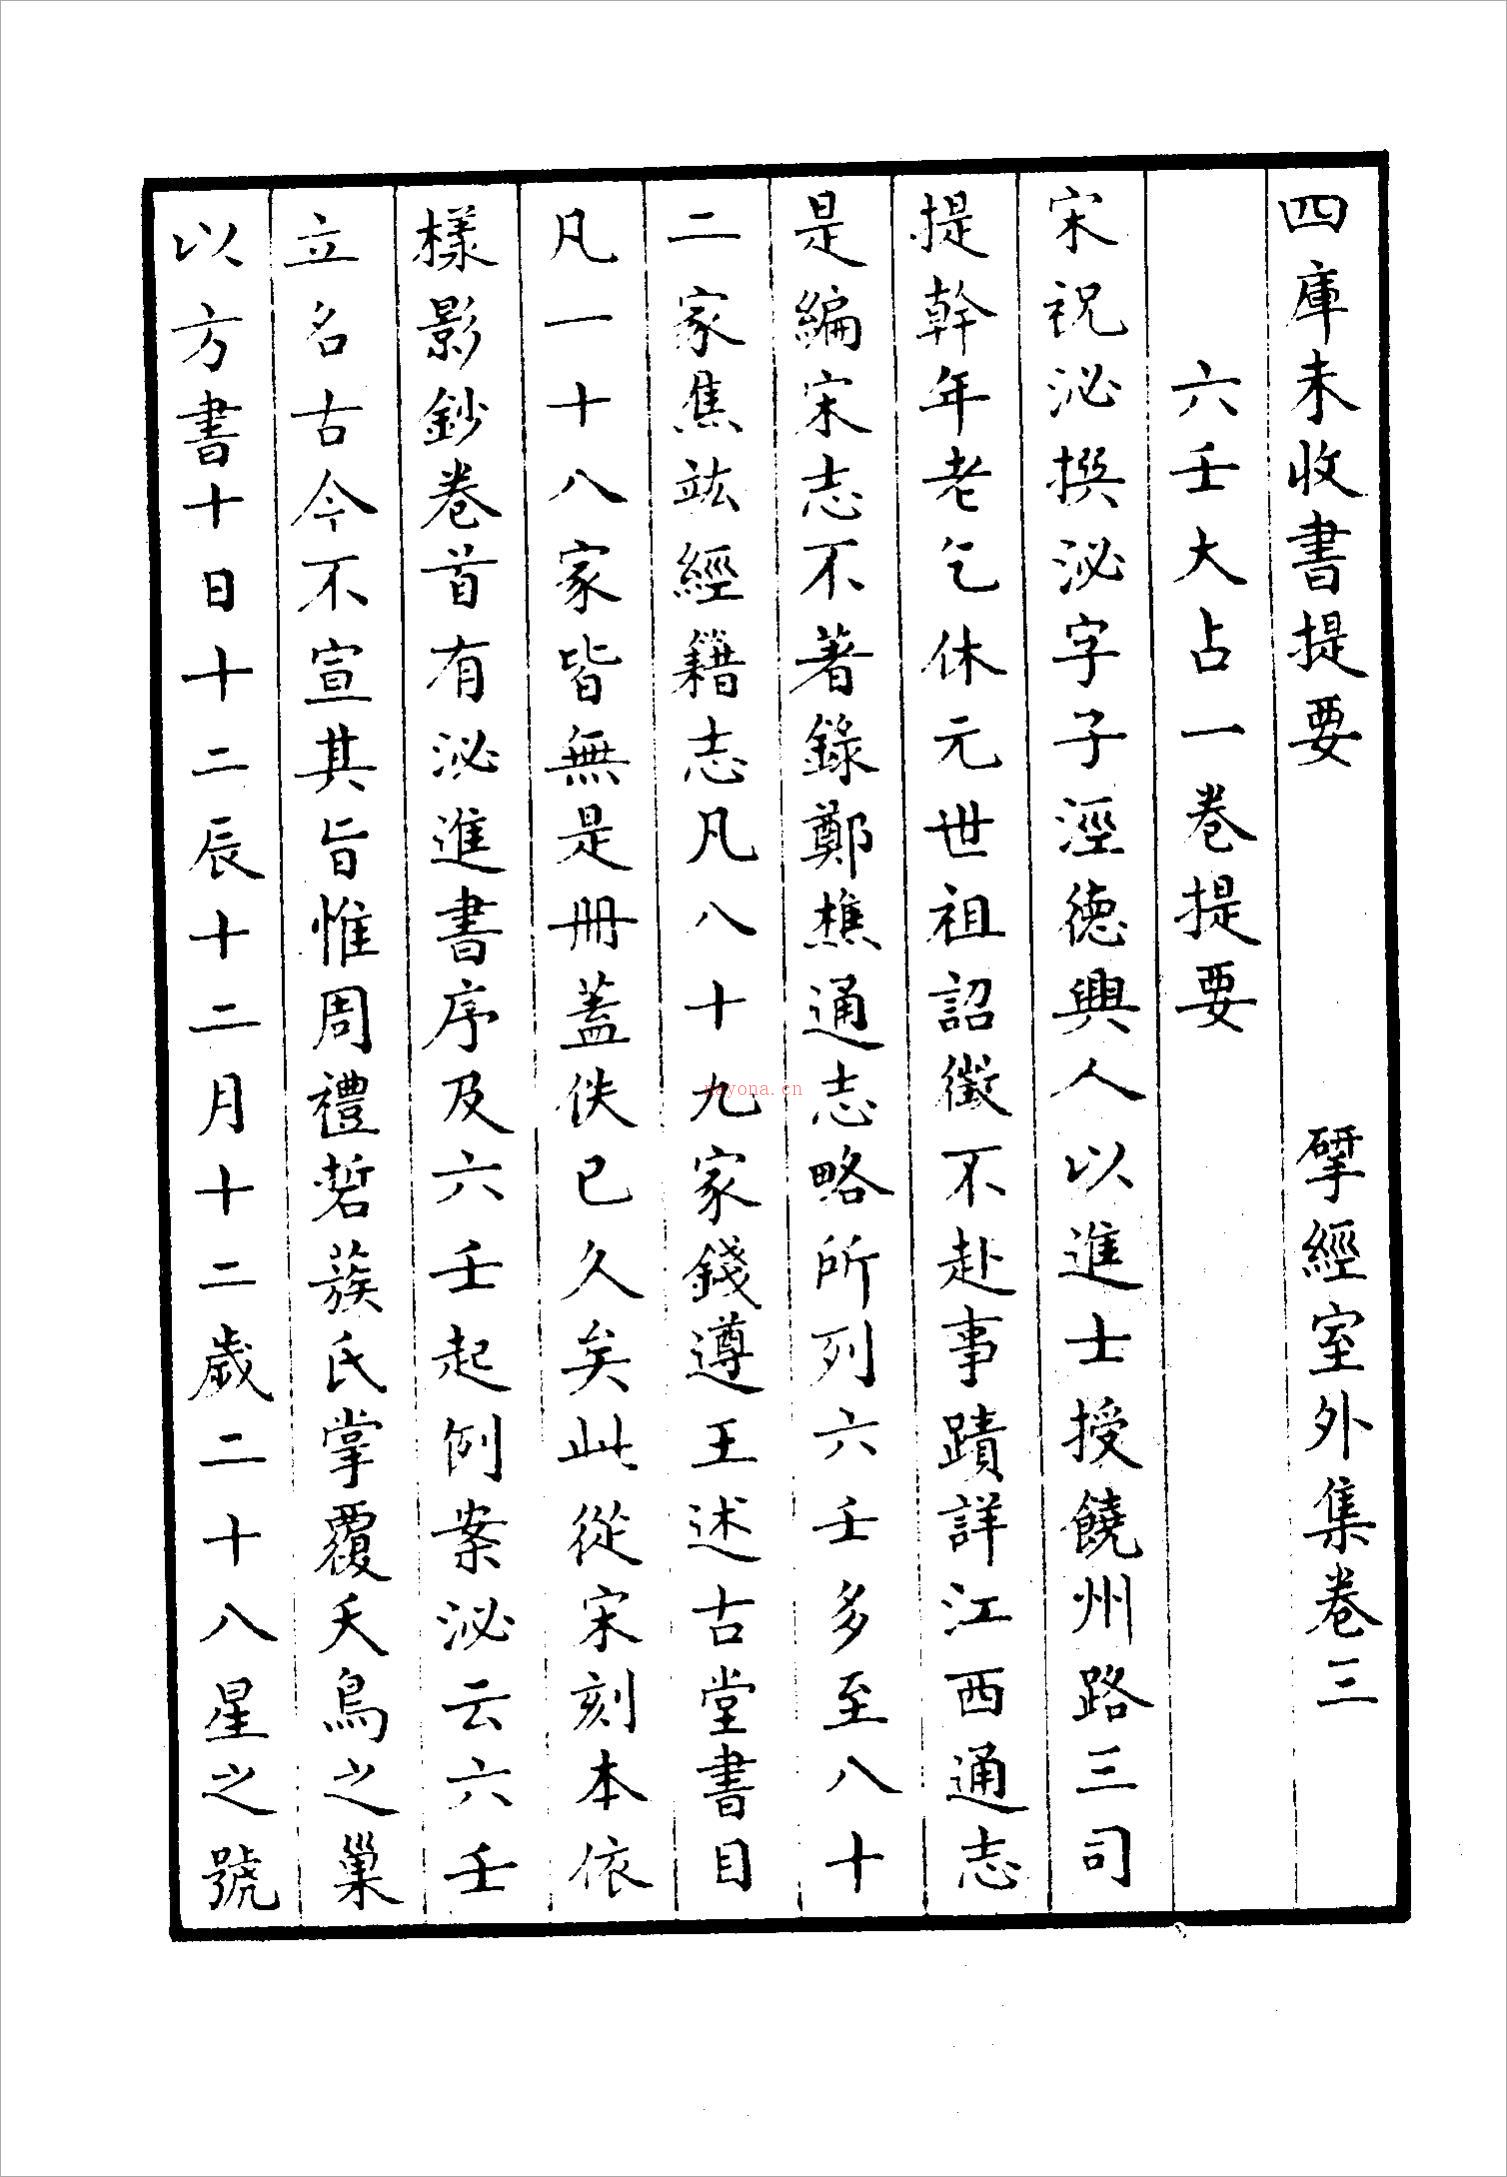 四庫未收書提要 揅經室外集卷三
六壬大占一卷提要
宋祝泌撰泌字子涇德興人以進士授饒州路三司
提幹年老乞休元世祖詔徵不赴事蹟詳江西通志
是編宋志不著錄鄭樵通志略所列六壬多至八十
二家焦竑經籍志凡八十九家錢遵王述古堂書目
凡一十八家皆無是冊蓋佚已久矣此從宋刻本依
樣影鈔卷首有泌進書序及六壬起例案泌云六壬
立名古今不宣其旨惟周禮硩蔟氏掌覆夭鳥之巢
以方書十日十二辰十二月十二歲二十八星之號
nayona.cn